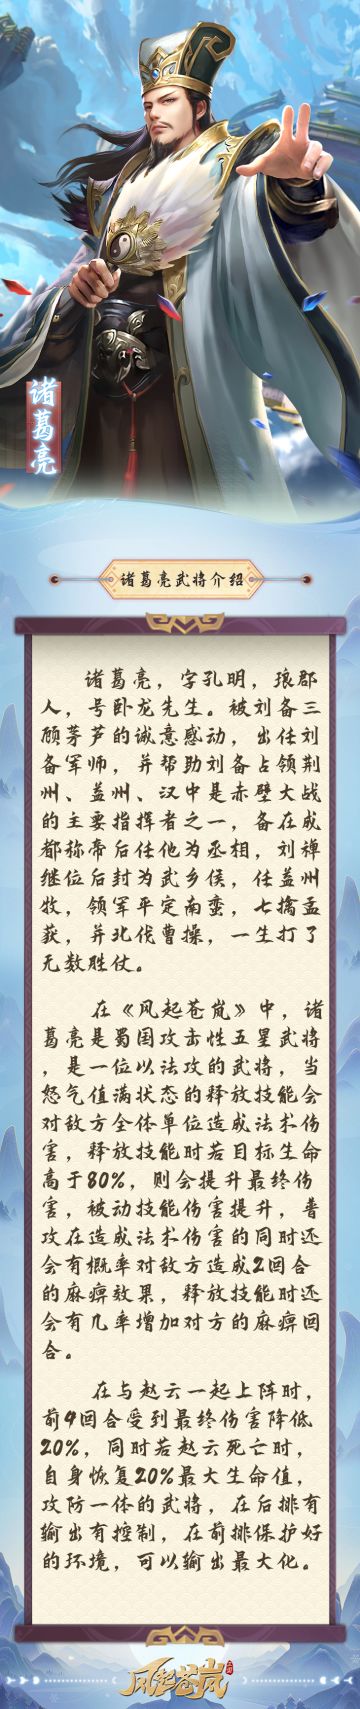 诸葛亮
诸葛亮武将介绍
诸葛亮，字孔明，琅郡
人，号卧龙先生。被刘备三
顾茅芦的诚意感动，出任刘
备军师，并帮助刘备占领荆
州、益州、汉中是赤壁大战
的主要指挥者之一，备在成
都称帝后任他为丞相，刘禅
继位后封为武乡侯，任益州
牧，领军平定南蛮，七擒孟
获，并北伐曹操，一生打了
无数胜仗。
在《风起苍岚》中，诸
葛亮是蜀国攻击性五星武将
，是一位以法攻的武将，当
怒气值满状态的释放技能会
对敌方全体单位造成法术伤
害，释放技能时若目标生命
高于80%，则会提升最终伤
害，被动技能伤害提升，普
攻在造成法术伤害的同时还
会有概率对敌方造成2回合
的麻痹效果，释放技能时还
会有几率增加对方的麻痹回
合。
在与赵云一起上阵时，
前4回合受到最终伤害降低
20%，同时若赵云死亡时，
自身恢复20%最大生命值，
攻防一体的武将，在后排有
输出有控制，在前排保护好
的环境，可以输出最大化。
风起苍岚